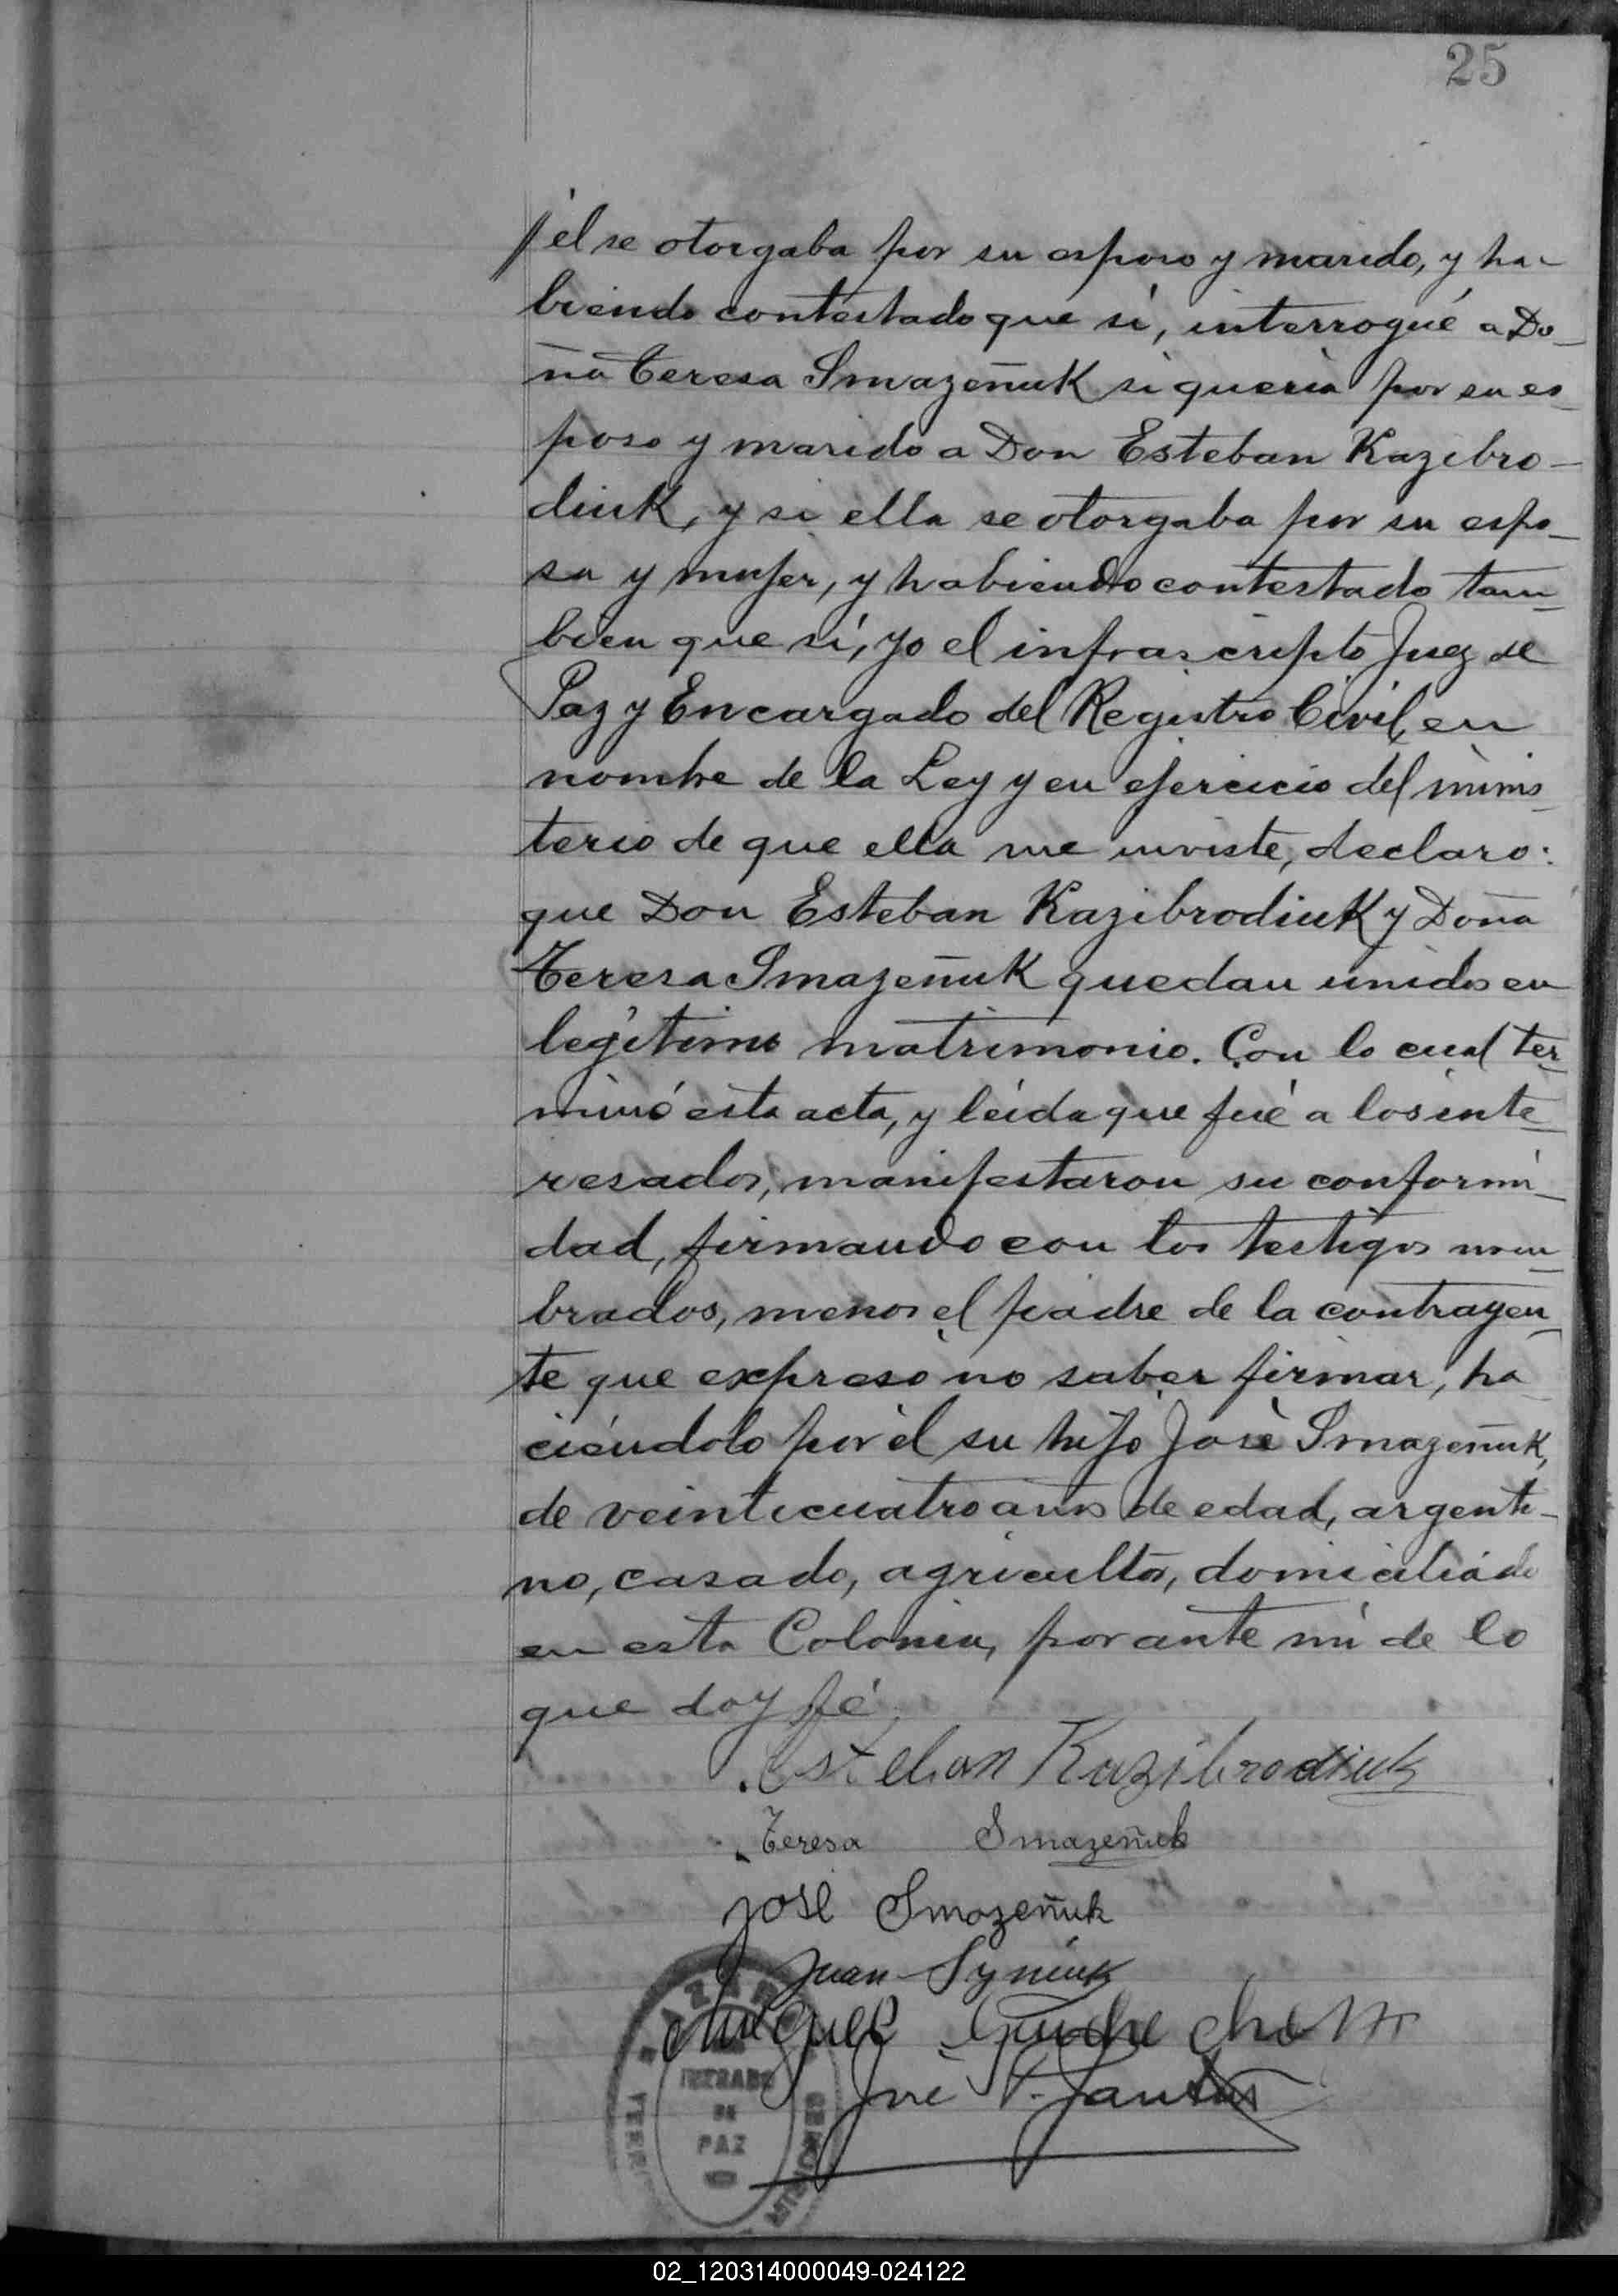 25
// él se otorgaba por su esposo y marido, y ha-
biendo contestado que sí, interrogué a Do-
ña Teresa Smazeñuk si quería por su es-
poso y marido a Don Esteban Kazibro-
diuk, y si ella se otorgaba por su espo-
sa y mujer, y habiendo contestado tam-
bien que sí, yo el infrascripto Juez de
Paz y Encargado del Registro Civil, en
nombre de la Ley y en ejercicio del minis-
terio de que ella me inviste, declaro:
que Don Esteban Kazibrodiuk y Doña
Teresa Smazeñuk quedan unidos en
legítimo matrimonio. Con lo cual ter-
minó esta acta, y leída que fué a los inte-
resados, manifestaron su conformi-
dad, firmando con los testigos nom-
brados, menos el padre de la contrayen-
te que expresó no saber firmar, ha-
ciéndolo por él su hijo José Smazeñuk,
de veinticuatro años de edad, argenti-
no, casado, agricultor, domiciliado
en esta Colonia, por ante mí de lo
que doy fé
Esteban Kazibrodiuk
Teresa Smazeñuk
José Smazeñuk
Juan Syniuk
Miguel
José V. Santos
JUZGADO
DE
PAZ
02_120314000049-024122